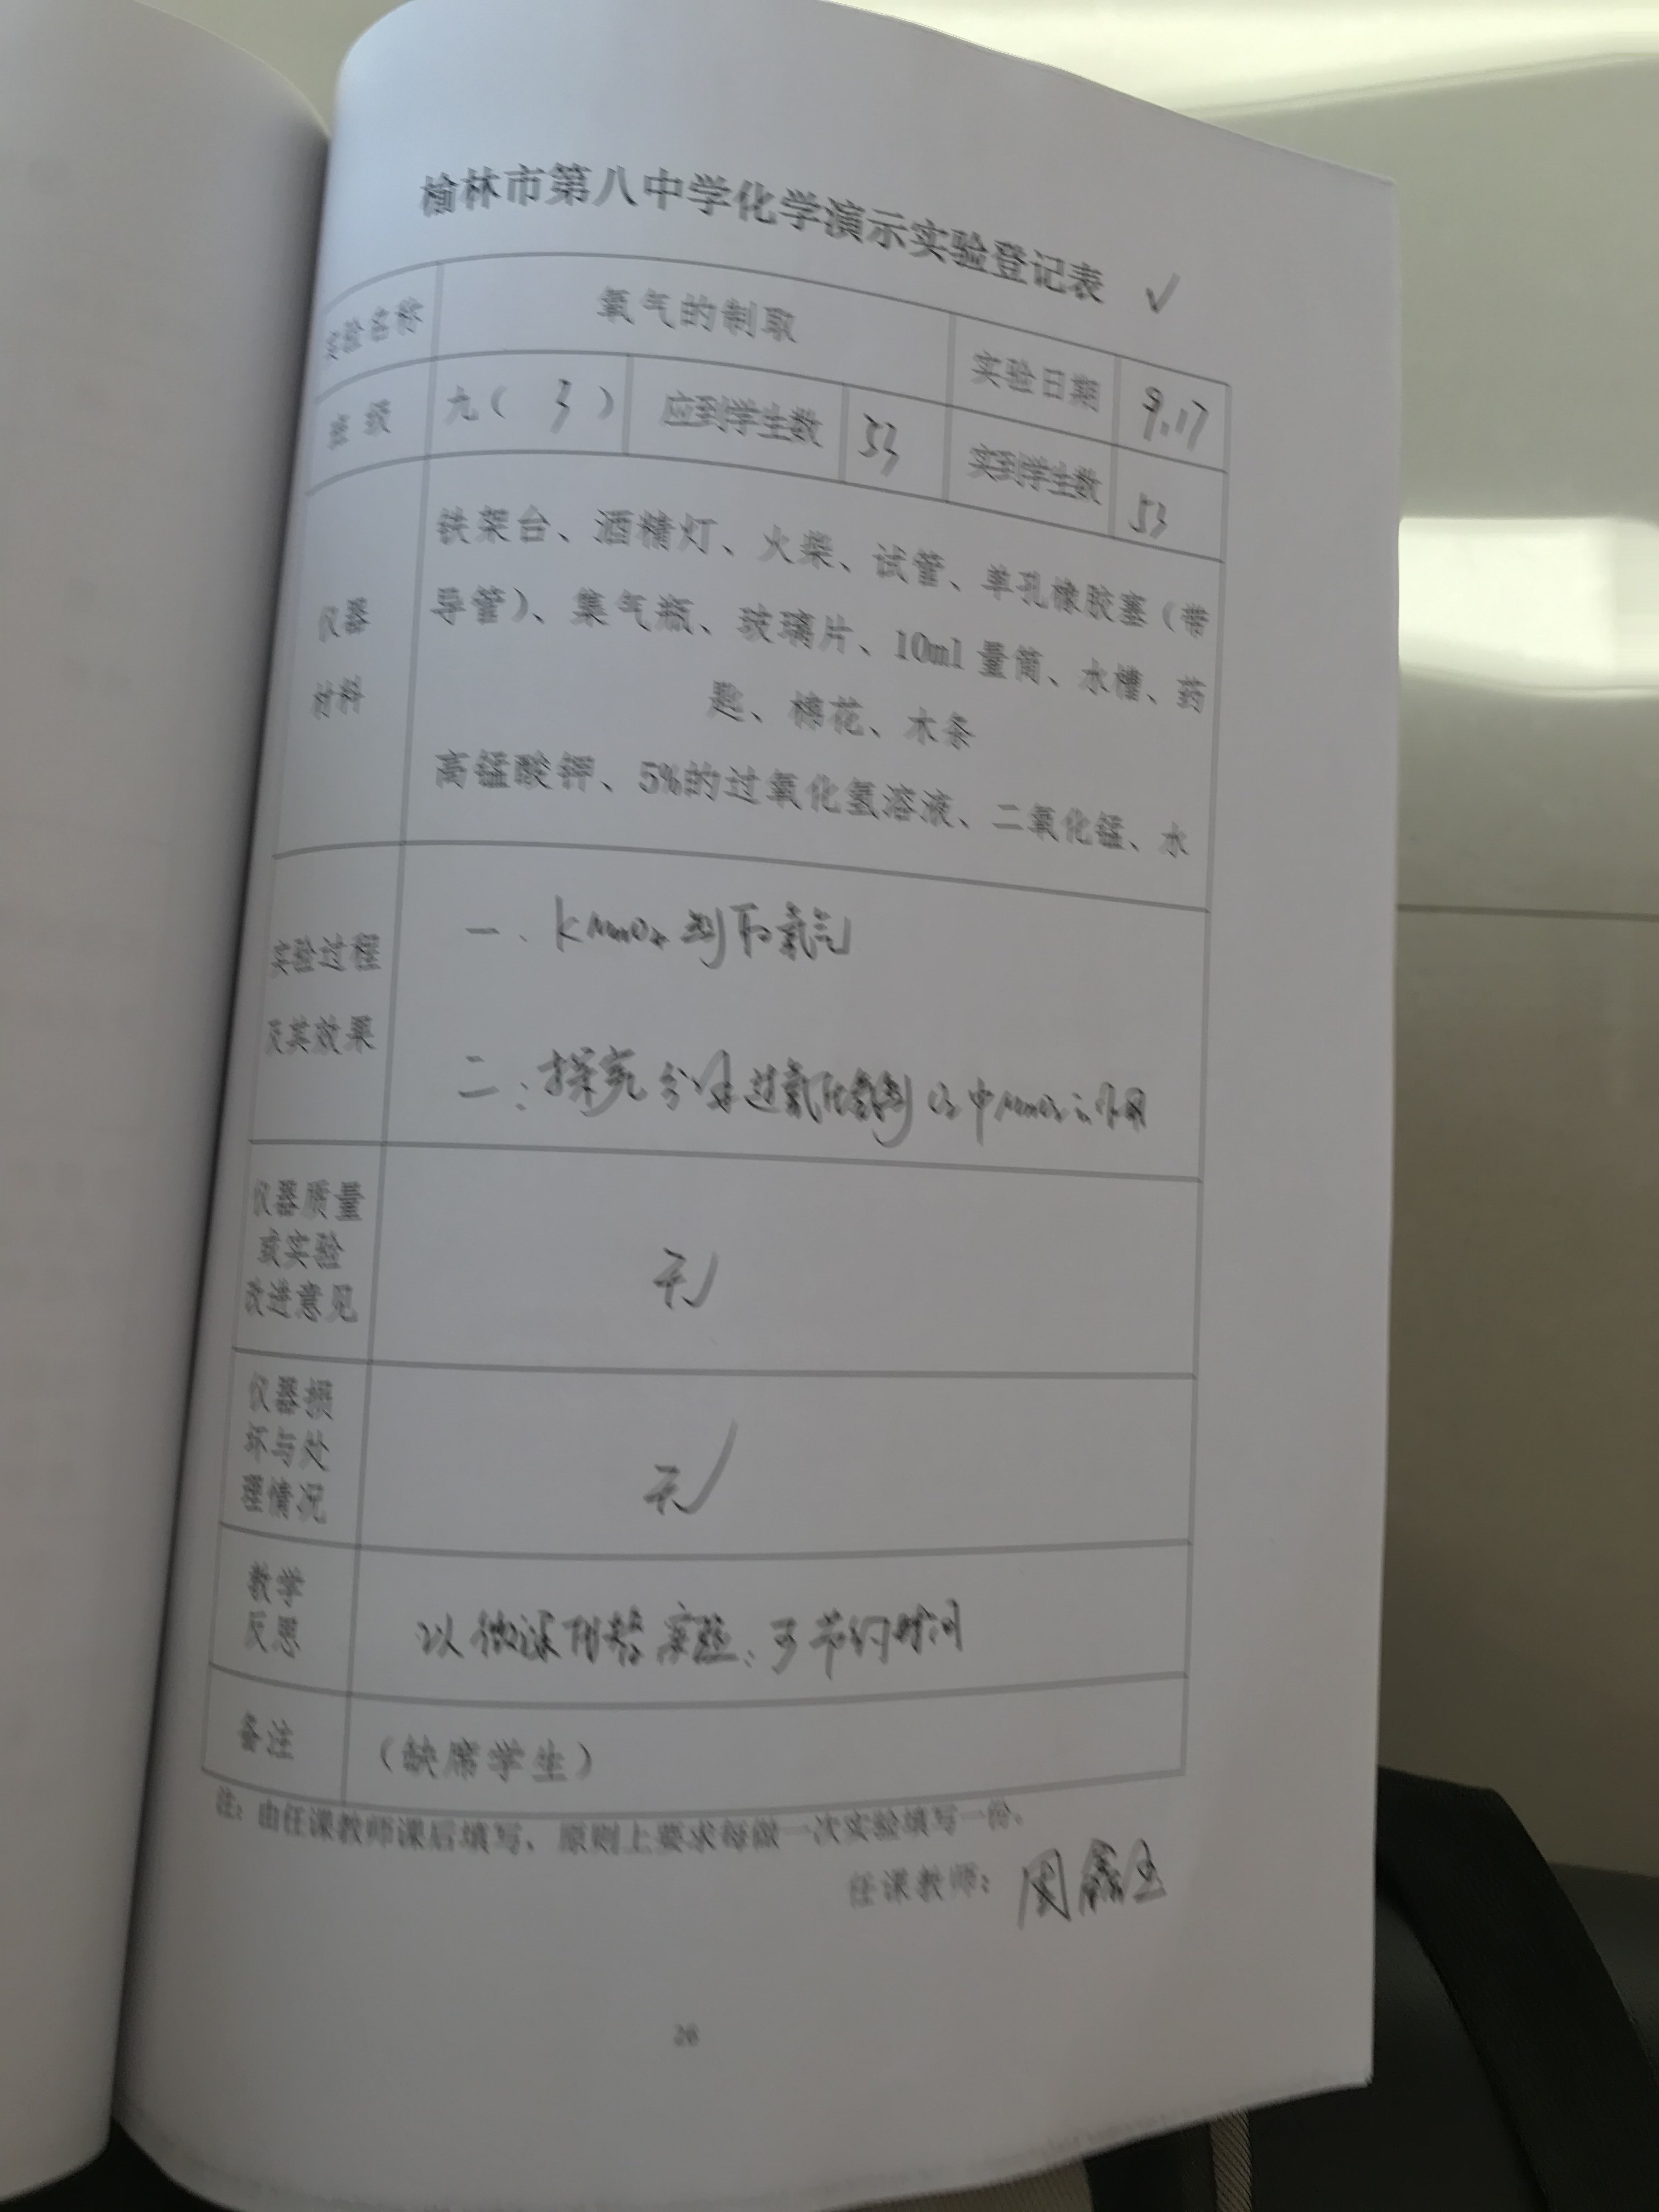 榆林市第八中学化学演示实验登记表 √
实验名称 氧气的制取 实验日期 9.17
班级 九( 3 ) 应到学生数 53 实到学生数 53
仪器
材料
铁架台、酒精灯、火柴、试管、单孔橡胶塞（带
导管）、集气瓶、玻璃片、10ml量筒、水槽、药
匙、棉花、木条
高锰酸钾、5%的过氧化氢溶液、二氧化锰、水
实验过程
及其效果
一、KMnO4制取氧气
二：探究分解过氧化氢制O2中MnO2的作用
仪器质量
或实验
改进意见
无
仪器损
坏与处
理情况
无
教学
反思
以微课代替实验，可节约时间
备注 （缺席学生）
注：由任课教师课后填写，原则上要求每做一次实验填写一份。
任课教师：周鑫
26